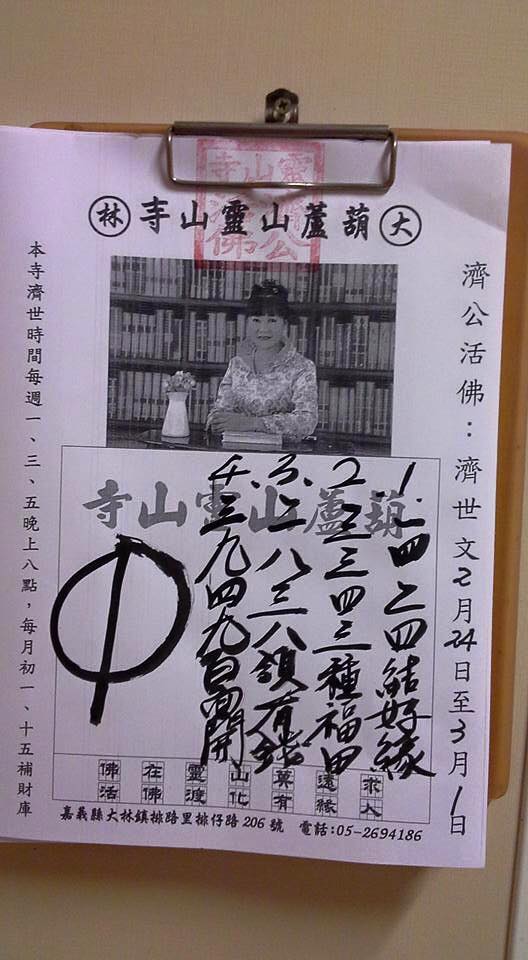 靈山寺
大 葫蘆山靈山寺 林
濟公活佛：濟世文2月24日至3月1日
葫蘆山靈山寺
1.二四二四結好緣
2.二三四三種福田
3.二八三八領有錢
4.三九四九百開
佛在靈山莫遠求
活佛渡化有緣人
本寺濟世時間每週一、三、五晚上八點，每月初一、十五補財庫
嘉義縣大林鎮排路里排仔路 206 號 電話:05-2694186